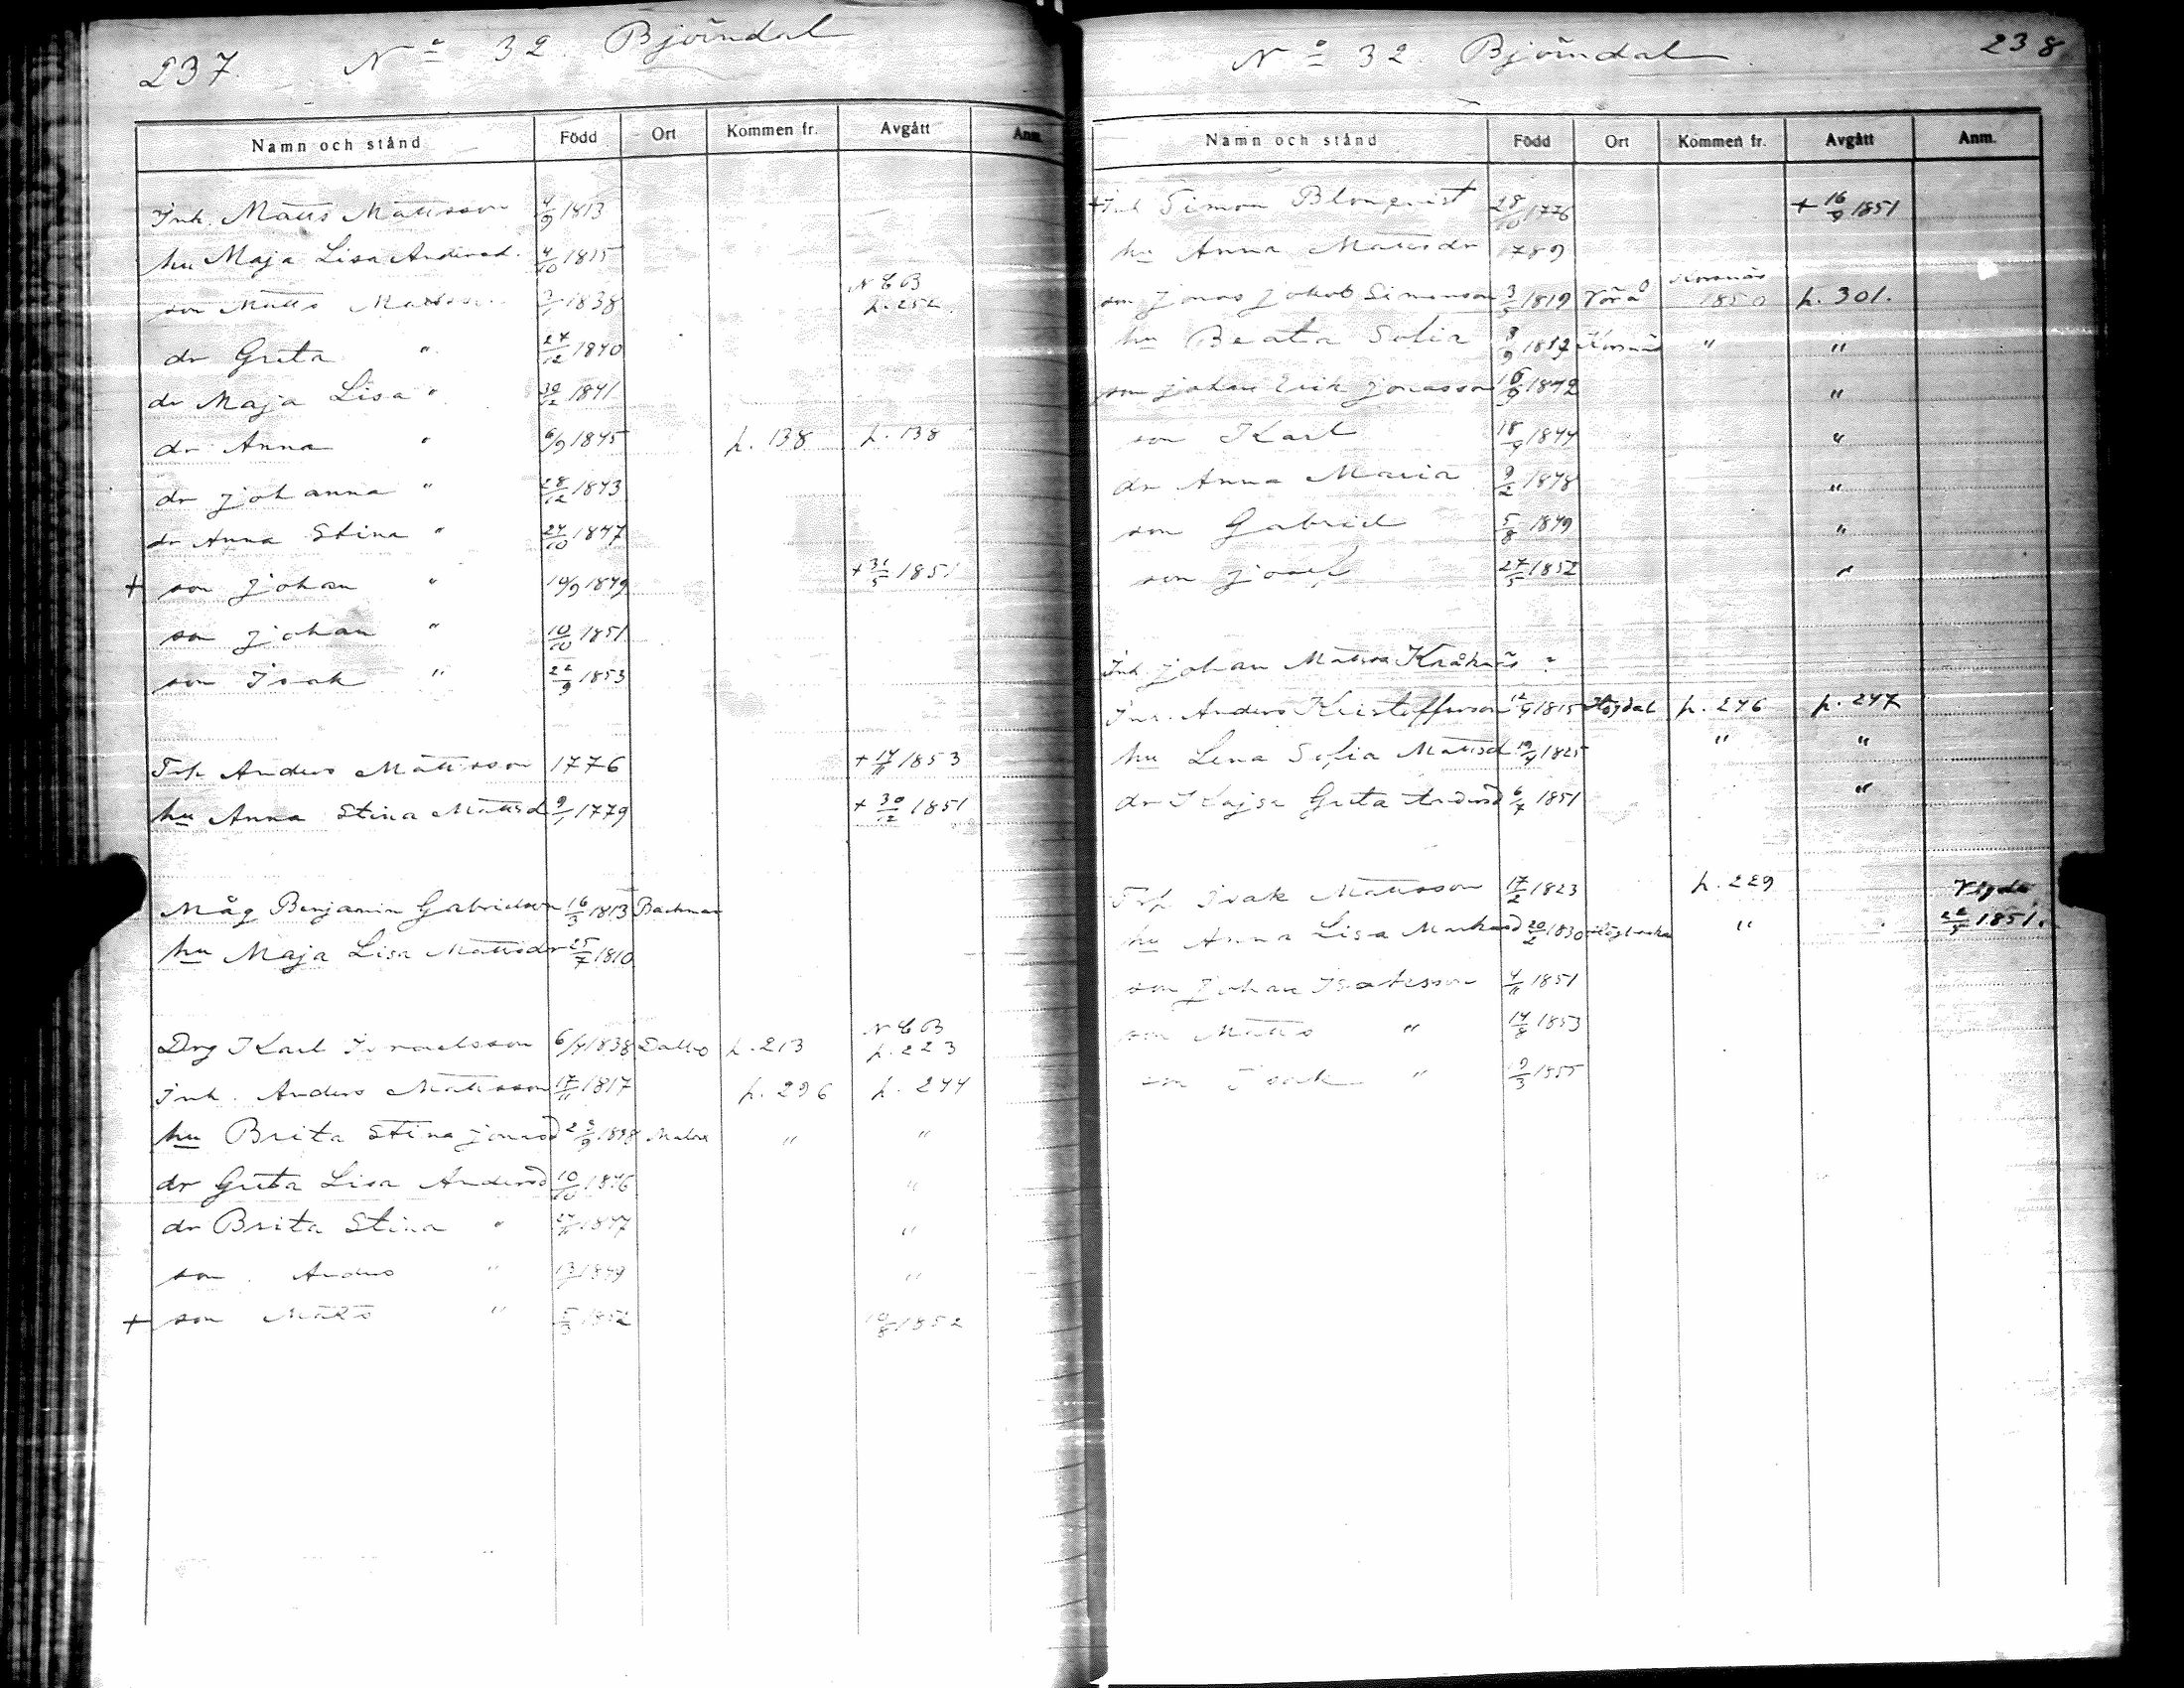 237. No 32. Björndal
Namn och stånd Född Ort Kommen fr. Avgått Anm.
Inh. Matts Mattsson 4/9 1813
hu Maja Lisa Andersd. 4/10 1815
son Matts Mattsson 3/1 1838 N C B p. 252.
dr Greta " 27/12 1840
dr Maja Lisa " 30/12 1841
dr Anna " 6/9 1845 p. 138 p. 138
dr Johanna " 28/12 1843
dr Anna Stina " 24/10 1847
+ son Johan " 10/9 1849 + 31/5 1851
son Johan " 10/10 1851
son Isak " 22/9 1853
Trp Anders Mattsson 1776 + 17/11 1853
hu Anna Stina Mattsd 9/1 1779 + 30/12 1851
Måg Benjamin Gabrielsson 16/3 1813 Backmar
hu Maja Lisa Mattsdr 25/7 1810
Drg Karl Israelsson 6/4 1838 Dalbo p. 213 N C B p. 223
Inh. Anders Mattsson 17/11 1817 p. 296 p. 244
hu Brita Stina Jonasd Malax " "
dr Greta Lisa Andersd 10/10 1846 "
dr Brita Stina " 27/11 1847 "
son Anders " 1849 "
+ son Matts " 5/3 1852 10/8 1852
No 32. Björndal 238
Namn och stånd Född Ort Kommen fr. Avgått Anm.
+ Inh Simon Blomqvist 28/10 1776 + 16/9 1851
hu Anna Mattsdr 1789
son Jonas Jakob Simonson 3/5 1819 Vörå Korsnäs 1850 p. 301.
hu Beata Sofia Korsnäs " "
son Johan Erik Jonasson 1842 "
son Karl 18/9 1844 "
dr Anna Maria 9/2 1848 "
son Gabriel 5/8 1849 "
son Josef 27/5 1852 "
Inh. Johan Mattss Kråknäs
Inh. Anders Kristoffersson 1815 Högdal p. 246 p. 247
hu Lena Sofia Mattsd 19/4 1825 " "
dr Kajsa Greta Andersd 6/7 1851 "
Trp. Isak Mattsson 17/2 1823 p. 229 Vigda
hu Anna Lisa Markusd 20/2 1830 Högbacka " 1851.
son Johan Isaksson 4/11 1851
son Matts " 14/8 1853
son Isak " 1855